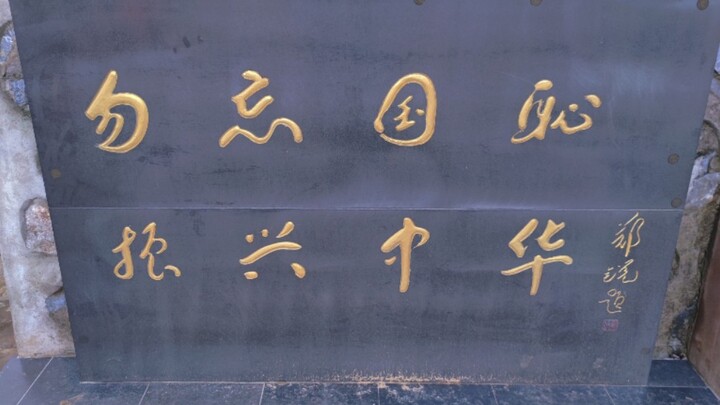 勿忘国耻
振兴中华
郑瑞题